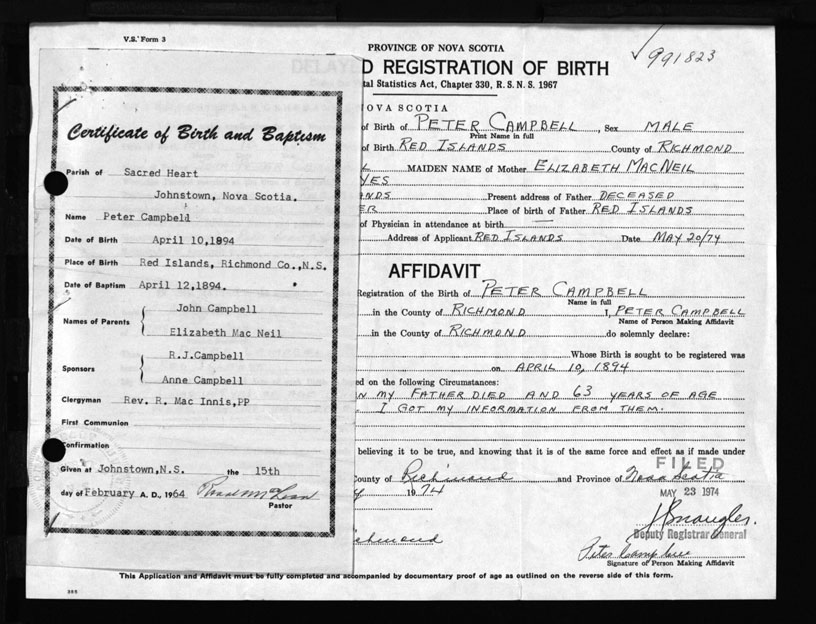 V.S. Form 3
PROVINCE OF NOVA SCOTIA
991823
DELAYED REGISTRATION OF BIRTH
tal Statistics Act, Chapter 330, R.S.N.S. 1967
NOVA SCOTIA
of Birth of PETER CAMPBELL, Sex MALE
Print Name in full
of Birth RED ISLANDS County of RICHMOND
MAIDEN NAME of Mother ELIZABETH MACNEIL
YES
NDS Present address of Father DECEASED
ER Place of birth of Father RED ISLANDS
of Physician in attendance at birth
Address of Applicant RED ISLANDS Date MAY 20/74
AFFIDAVIT
Registration of the Birth of PETER CAMPBELL
Name in full
in the County of RICHMOND I, PETER CAMPBELL
Name of Person Making Affidavit
in the County of RICHMOND do solemnly declare:
Whose Birth is sought to be registered was
on APRIL 10, 1894
ed on the following Circumstances:
N MY FATHER DIED AND 63 YEARS OF AGE
I GOT MY INFORMATION FROM THEM.
believing it to be true, and knowing that it is of the same force and effect as if made under
County of Richmond and Province of Nova Scotia
FILED
y 1974
MAY 23 1974
Deputy Registrar General
chmond
Peter Campbell
Signature of Person Making Affidavit
This Application and Affidavit must be fully completed and accompanied by documentary proof of age as outlined on the reverse side of this form.
Certificate of Birth and Baptism
Parish of Sacred Heart
Johnstown, Nova Scotia.
Name Peter Campbell
Date of Birth April 10,1894
Place of Birth Red Islands, Richmond Co.,N.S.
Date of Baptism April 12,1894.
John Campbell
Names of Parents
Elizabeth Mac Neil
R.J.Campbell
Sponsors
Anne Campbell
Clergyman Rev. R. Mac Innis,PP
First Communion
Confirmation
Given at Johnstown,N.S. the 15th
day of February A. D., 1964
Pastor